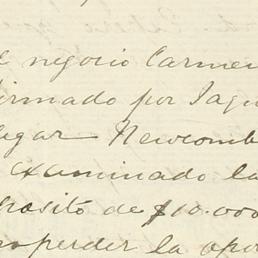 negocio Carmen
firmado por Jaqu
legar Newcomb
examinado la
posito de $10.000
perder la opor